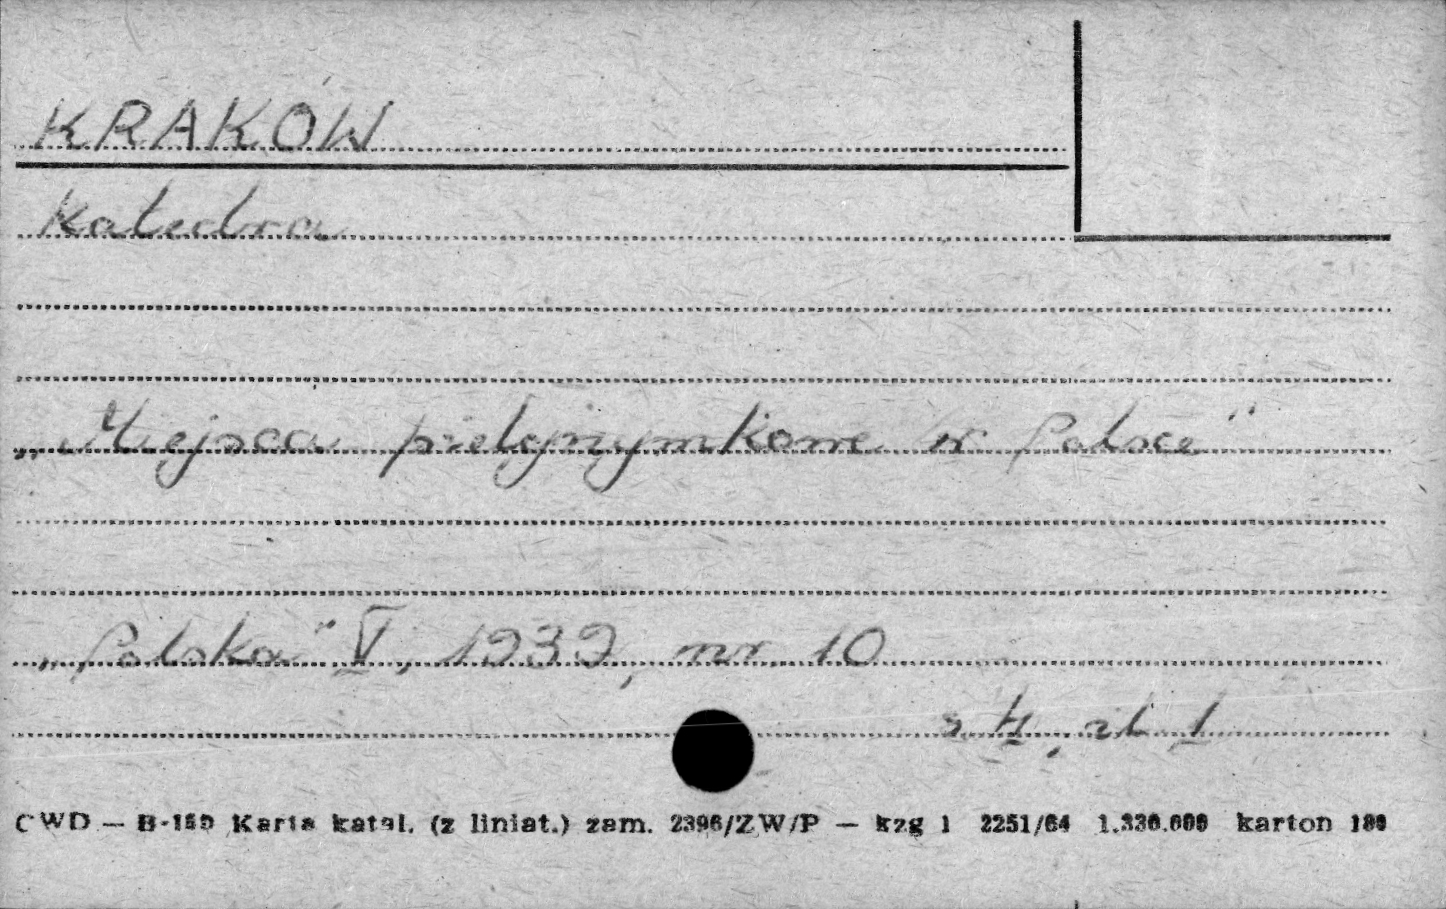 KRAKÓW
Katedra
„Miejsca pielgrzymkowe w Polsce"
„Polska" V, 1939, nr 10
s. 4, il. 1
CWD — B-150 Karta katal. (z liniat.) zam. 2396/ZW/P — kzg 1 2251/64 1.330.000 karton 180